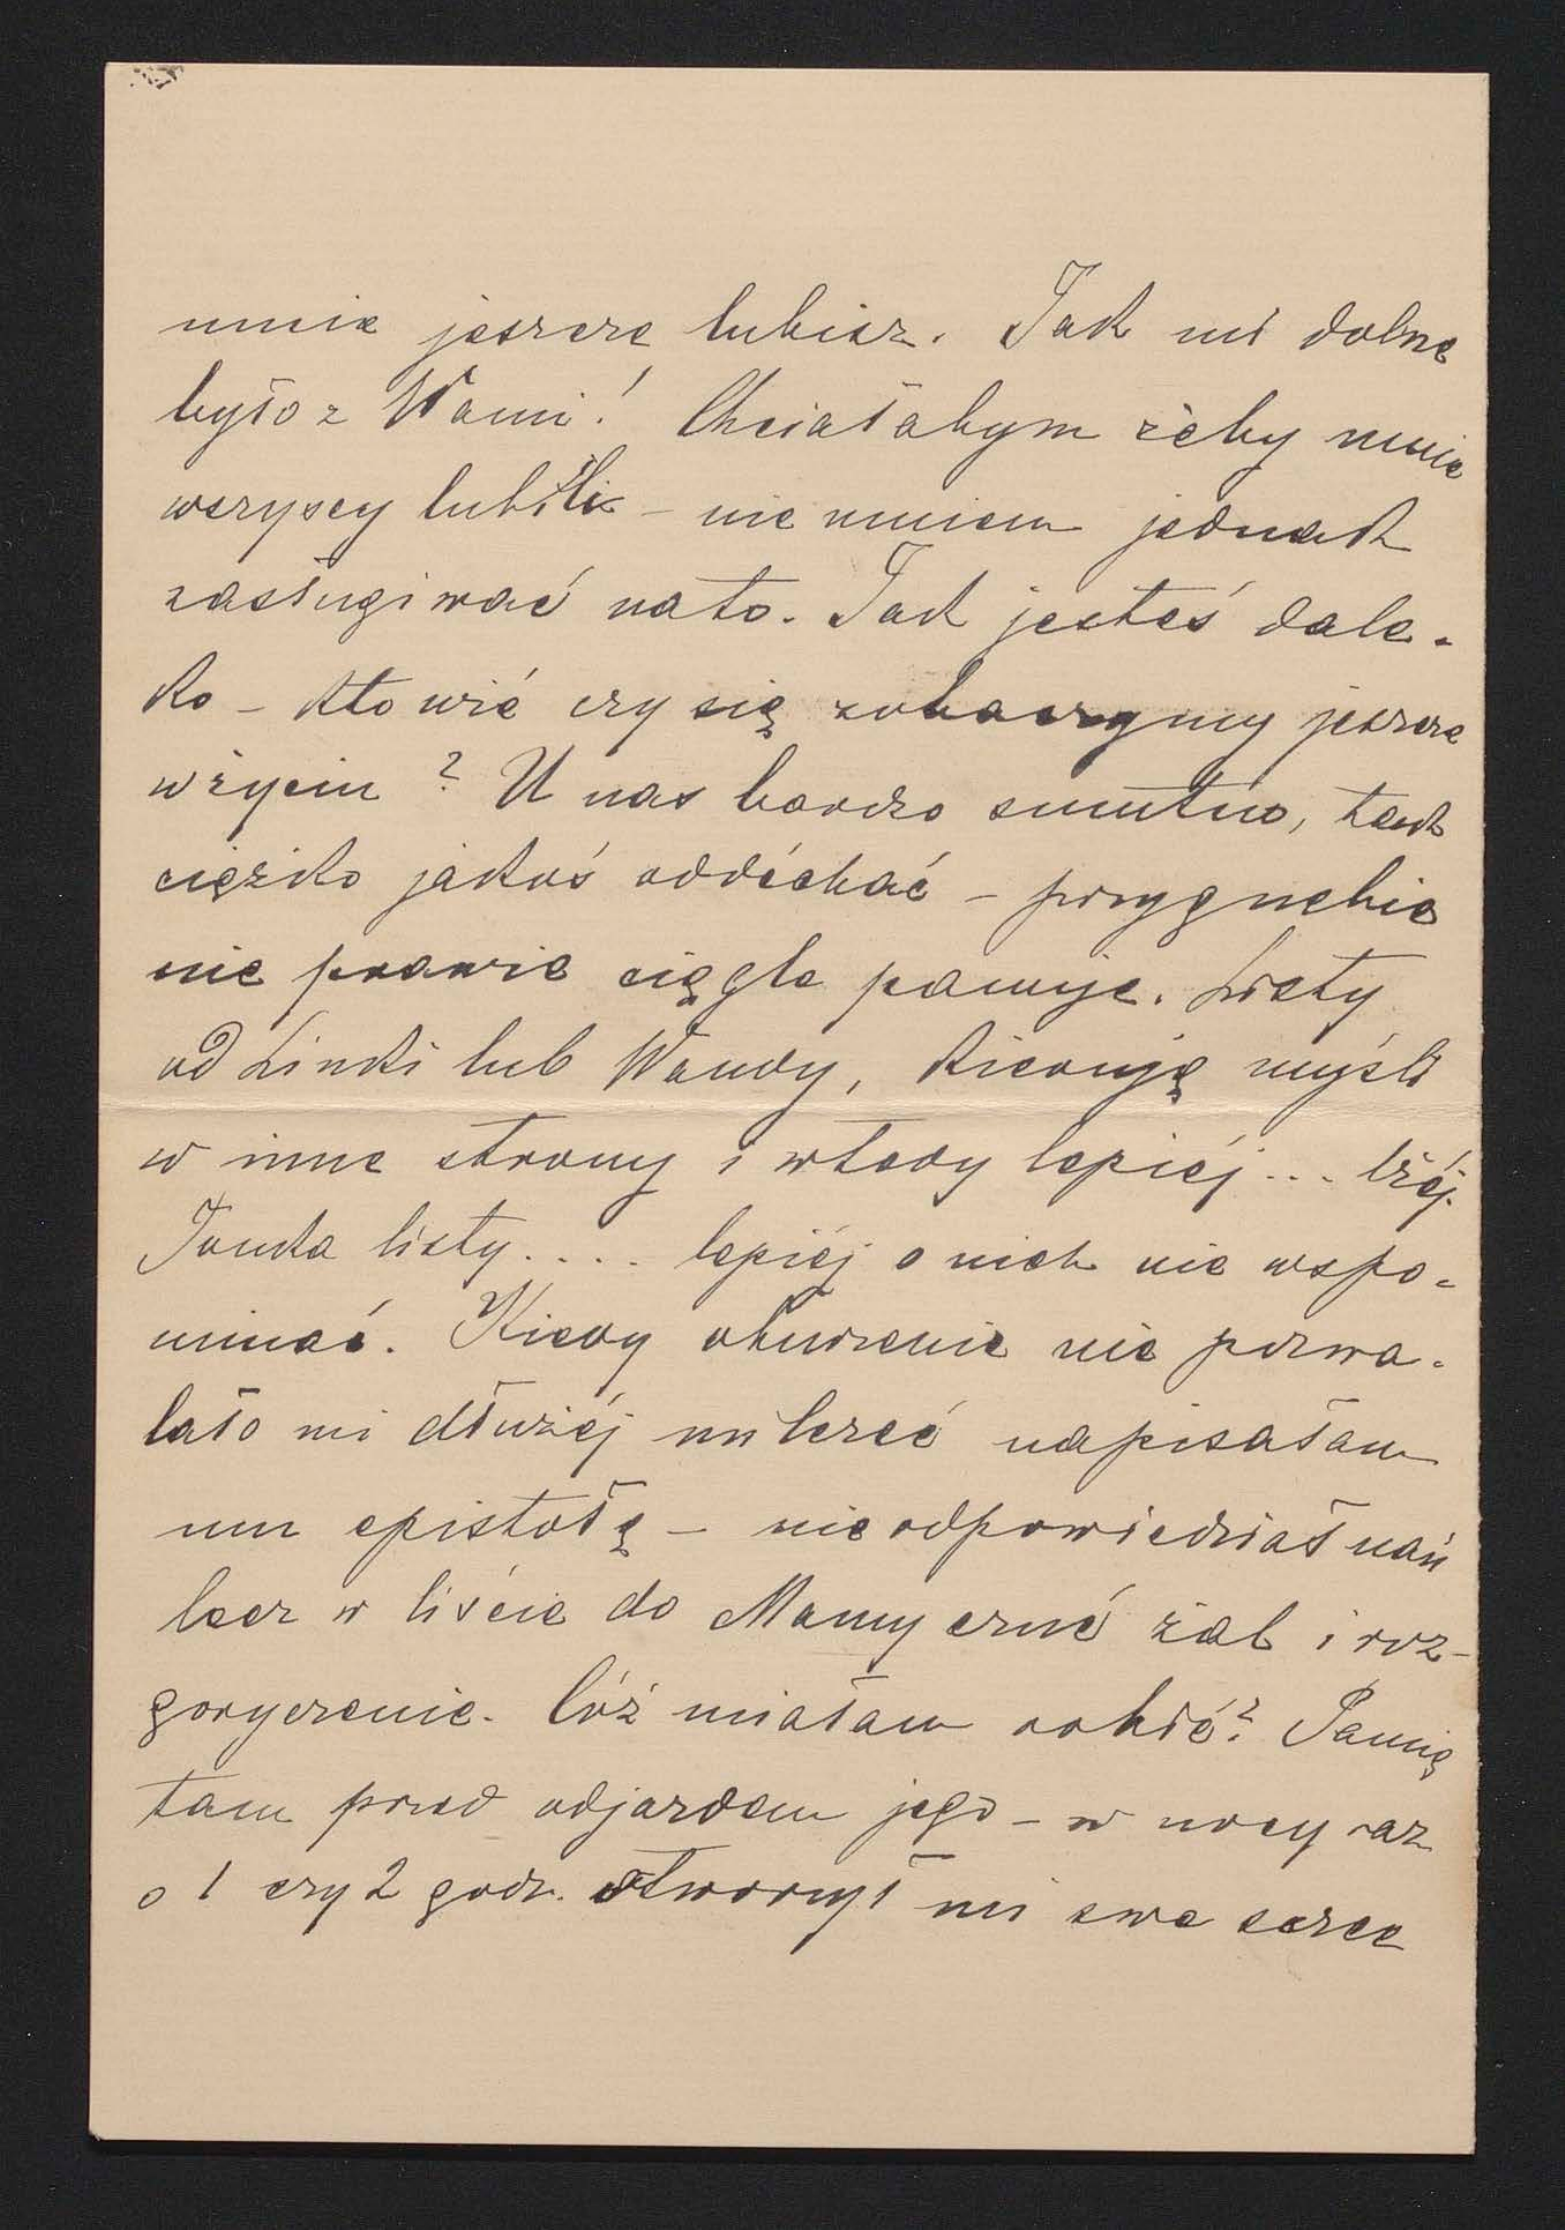 mnie jeszcze lubisz. Tak mi dobrze
było z Wami! Chciałabym żeby mnie
wszyscy lubili – nie umiem jednak
zasługiwać na to. Tak jesteś dale-
ko – kto wié czy się zobaczymy jeszcze
w życiu? U nas bardzo smutno, tak
ciężko jakoś oddéchać – przygnębie
nie prawie ciągle panuje. Listy
od Linki lub Wandy, kierują myśli
w inne strony i wtedy lepiéj... lżéj.
Janka listy.... lepiéj o nich nie wspo-
minać. Kiedy oburzenie nie pozwa-
lało mi dłużéj milczeć napisałam
mu epistołę – nie odpowiedział nań
lecz w liście do Mamy czuć żal i roz-
goryczenie. Cóż miałam robić? Pamię
tam przed odjazdem jego – w nocy raz
o 1 czy 2 godz. otworzył mi swe serce